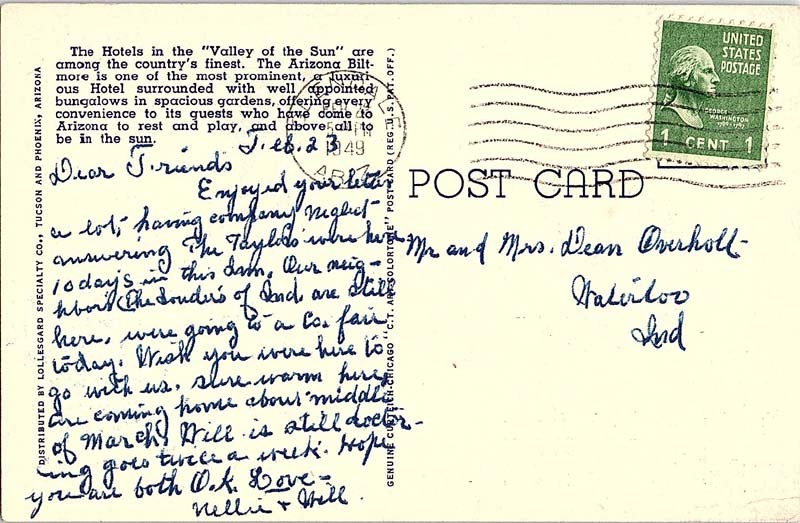 The Hotels in the "Valley of the Sun" are
among the country's finest. The Arizona Bilt-
more is one of the most prominent, a luxuri-
ous Hotel surrounded with well appointed
bungalows in spacious gardens, offering every
convenience to its guests who have come to
Arizona to rest and play, and above all to
be in the sun.
Feb. 23
Dear Friends
Enjoyed your letter
a lot, having company neglect-
answering The Taylors were here
10 days in this Inn. Our neig-
hbors (The Souders of Ind. are still
here, were going to a Co. fair
today. Wish you were here to
go with us. sure warm here,
are coming home about middle
of March. Will is still doctor-
ing goes twice a week. Hope
you are both O.K. Love-
Nellie & Will.
DISTRIBUTED BY LOLLESGARD SPECIALTY CO., TUCSON AND PHOENIX, ARIZONA
GENUINE CURTEICH-CHICAGO "C.T. ART-COLORTONE" POST CARD (REG. U.S. PAT. OFF.)
1949
ARIZ
UNITED
STATES
POSTAGE
GEORGE
WASHINGTON
1789-1797
1 CENT 1
POST CARD
Mr and Mrs. Dean Overholt
Waterloo
Ind